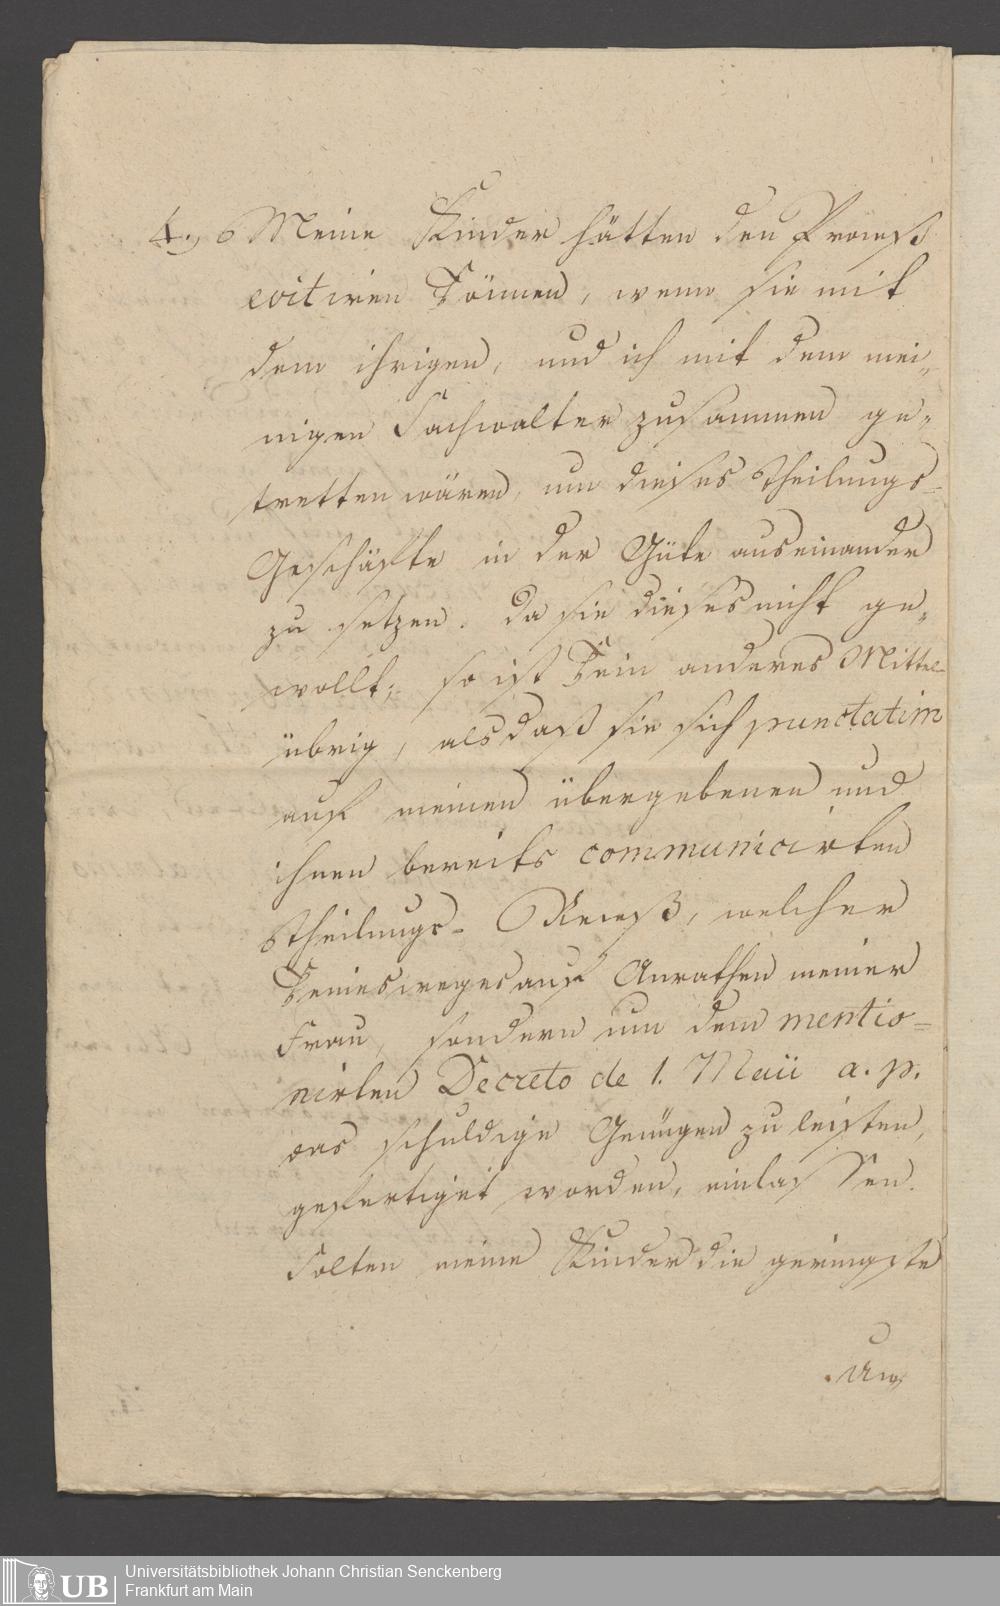 4.) Meine Kinder hätten den Proceß
evitiren können, wenn sie mit
dem ihrigen, und ich mit dem mei„
nigen Sachwalter zusammen ge„
tretten wären, um dieses Theilungs-
Geschäfte in der Güte auseinander
zu setzen. Da sie dieses nicht ge„
wollt; so ist kein anderes Mittel
übrig, als daß sie sich punctatim
auf meinen übergebenen und
ihnen bereits communicirten
Theilungs-Receß, welcher
keinesweges auf Anrathen meiner
Frau, sondern um dem mentio=
nirten Decreto de 1. Maii a. p.
das schuldige Genügen zu leisten,
gefertiget worden, einlassen.
Solten meine Kinder die geringste
Universitätsbibliothek Johann Christian Senckenberg
Frankfurt am Main
UB